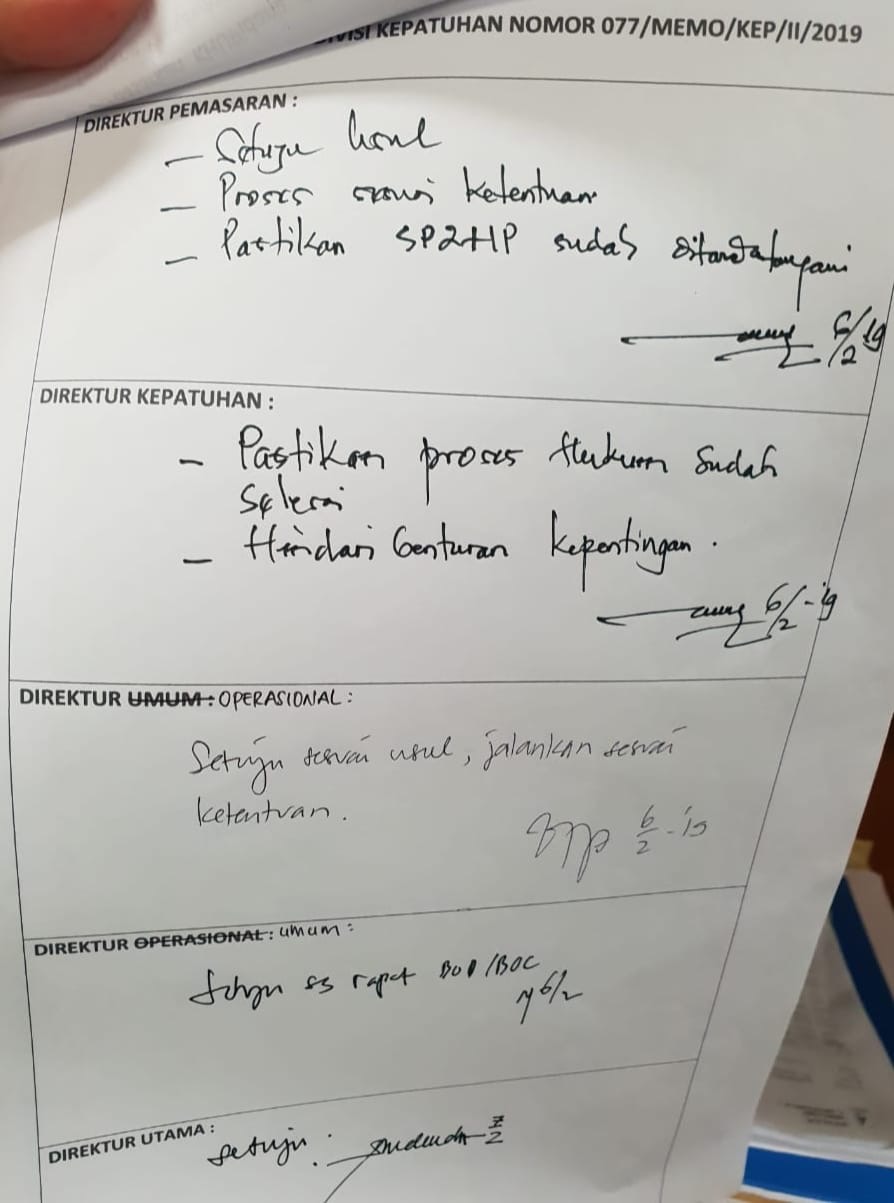 DIVISI KEPATUHAN NOMOR 077/MEMO/KEP/II/2019
DIREKTUR PEMASARAN :
– Setuju
– Proses sesuai ketentuan
– Pastikan SP2HP sudah ditandatangani
6/2 19
DIREKTUR KEPATUHAN :
– Pastikan proses Hukum sudah
selesai
– Hindari benturan kepentingan .
6/2 - 19
DIREKTUR UMUM : OPERASIONAL :
Setuju sesuai usul , jalankan sesuai
ketentuan .
6/2 - 19
DIREKTUR OPERASIONAL : umum :
Setuju ss rapat BOD /BOC
6/2
DIREKTUR UTAMA :
setuju .